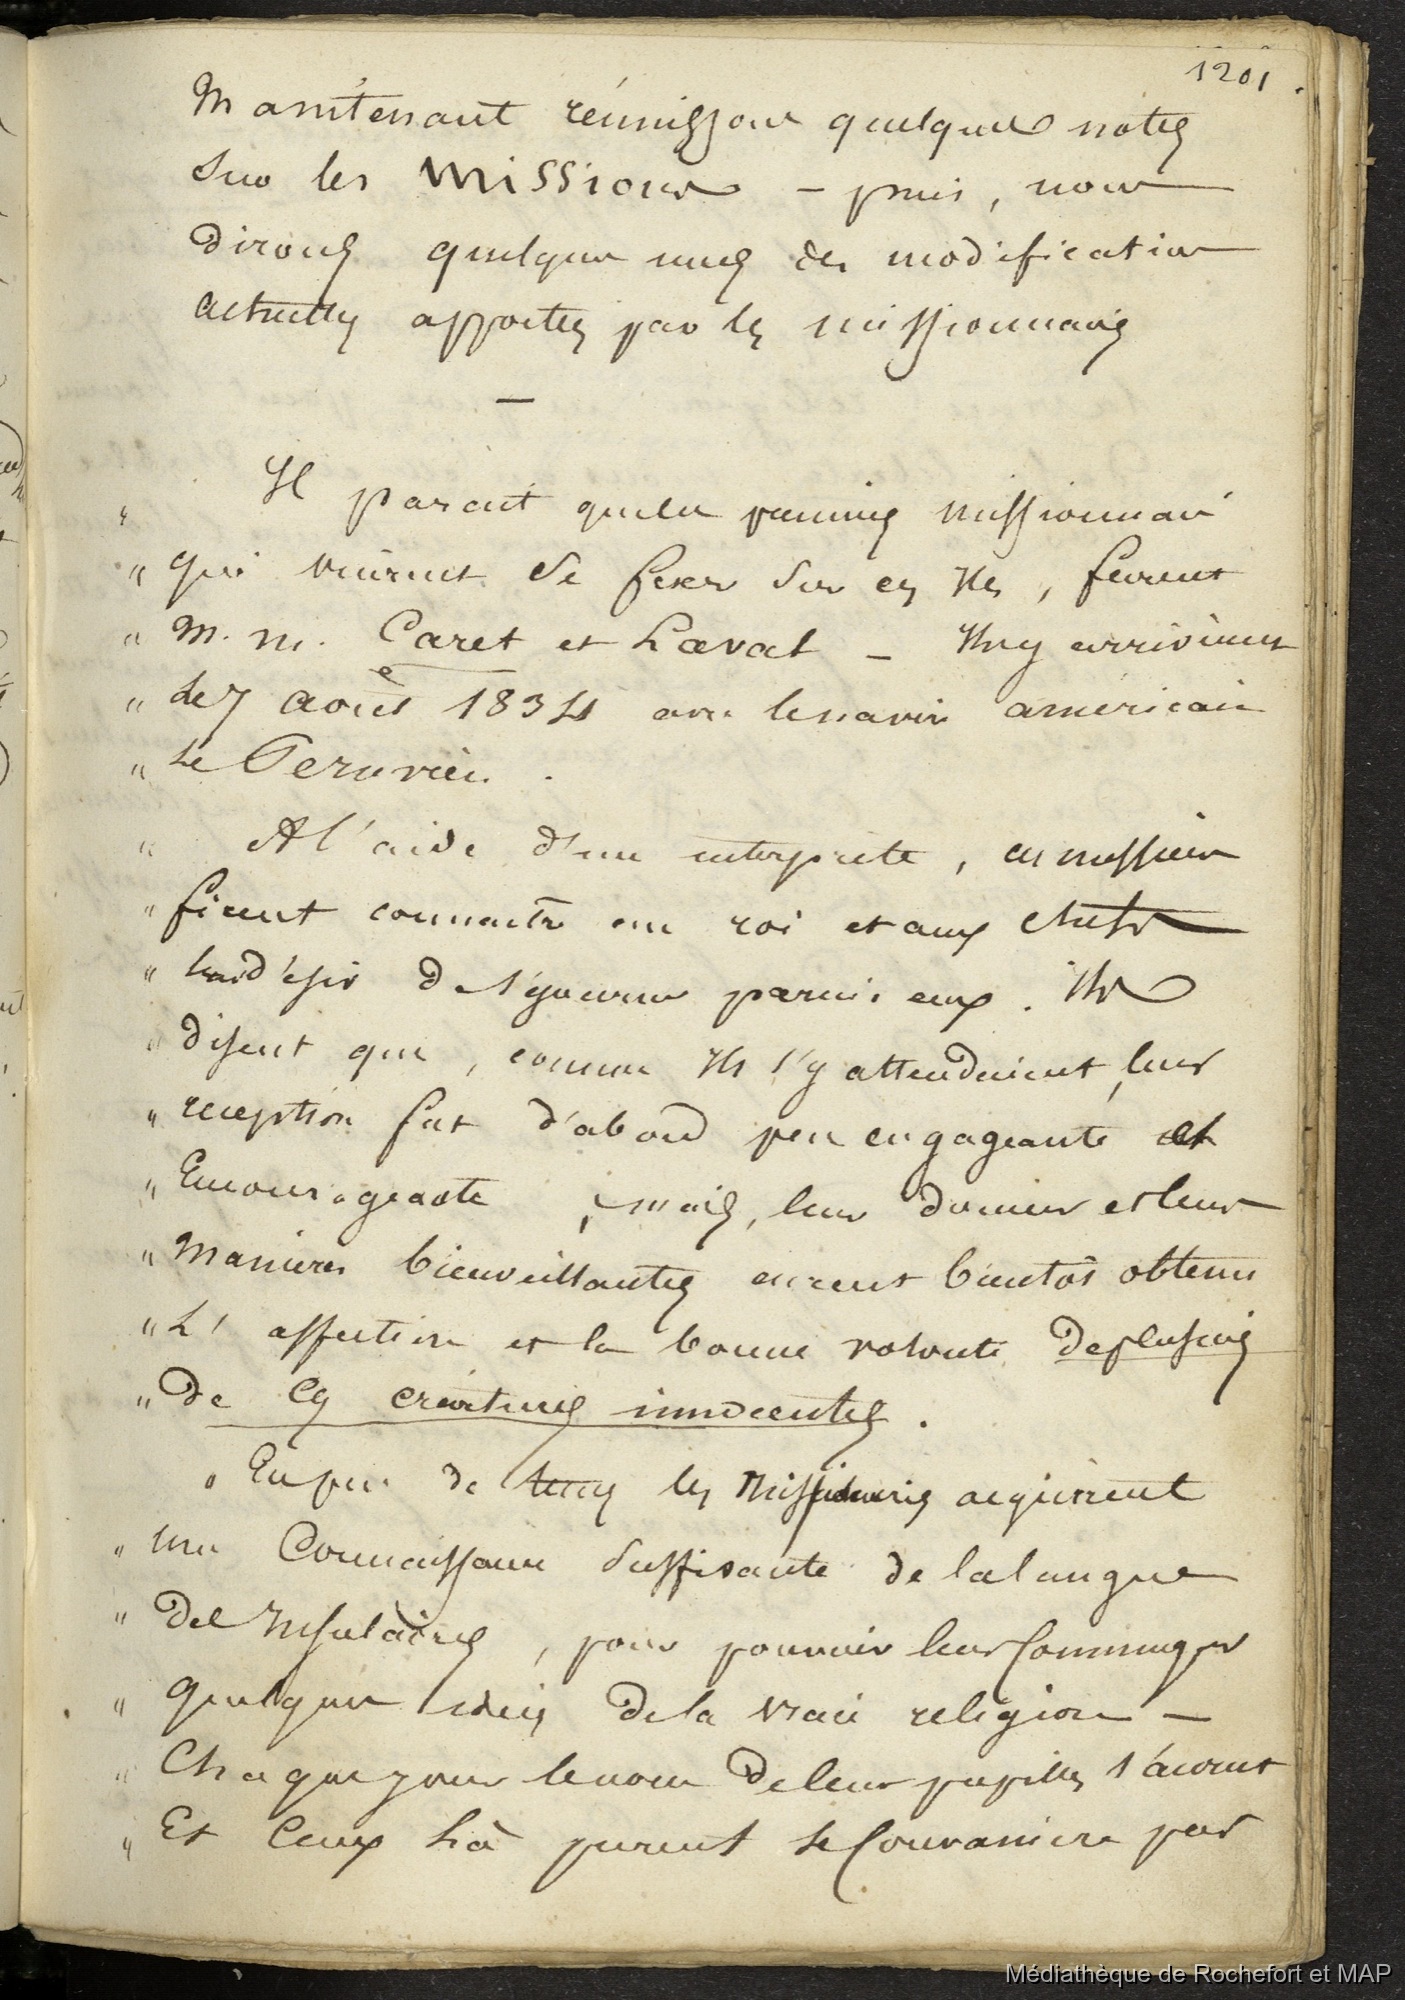 1201.
Maintenant réunissons quelques notes
sur les Missions — puis, nous
dirons quelques unes des modifications
actuelles apportées par les missionnaires
—
" Il parait que les premiers missionnaires
" qui vinrent se fixer sur ces Iles, furent
" M. M. Caret et Laval — Ils y arrivèrent
" Le 7 août 1834 avec le navire américain
" Le Péruvien.
" A l'aide d'un interprète, ces messieurs
" firent connaitre au roi et aux chefs
" leur désir de séjourner parmi eux. Ils
" disent que, comme Ils s'y attendaient, leur
" réception fut d'abord peu engageante et
" Encourageante, mais, leur douceur et leurs
" Manières bienveillantes eurent bientôt obtenu
" L'affection et la bonne volonté de plusieurs
" De ces créatures innocentes.
" En peu de temps les Missionnaires acquirent
" une Connaissance Suffisante de la langue
" Des Insulaires, pour pouvoir leur Communiquer
" Quelques idées de la vraie religion —
" Chaque jour le nom de leurs pupilles s'accrut
" Et Ceux là purent se Convaincre par
Médiathèque de Rochefort et MAP